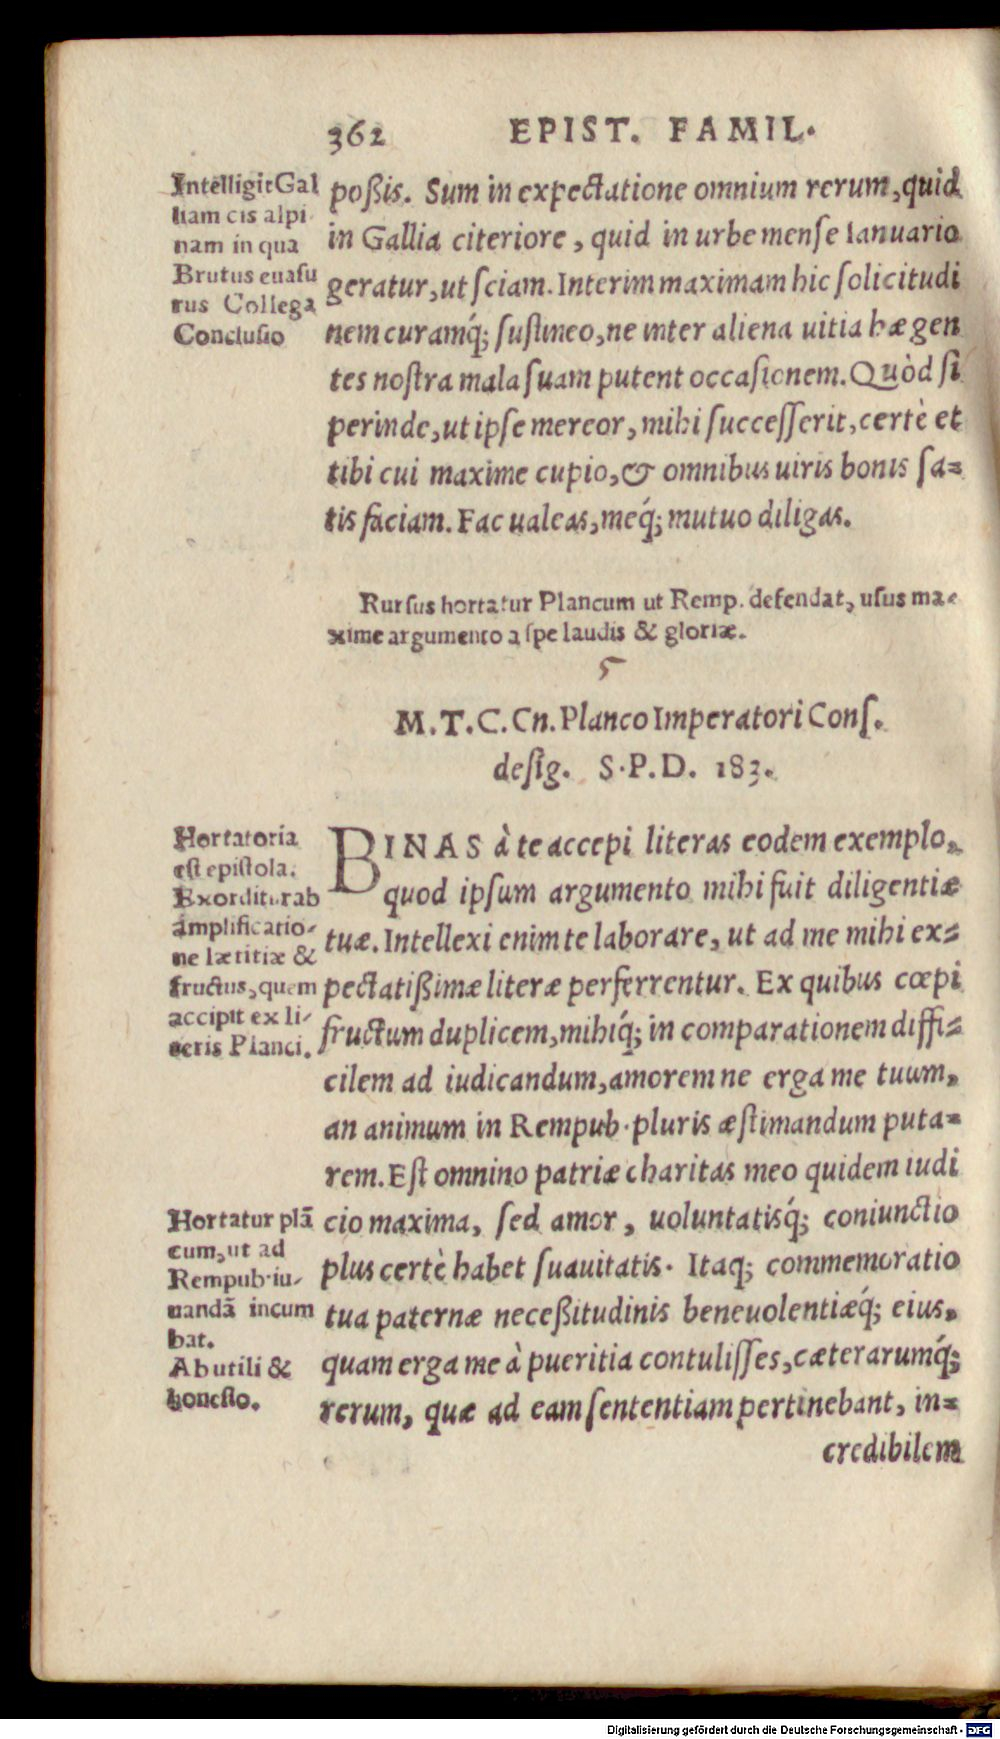 362 EPIST. FAMIL.
IntelligitGal
liam cis alpi
nam in qua
Brutus euasu
rus Collega
Conclusio
poßis. Sum in expectatione omnium rerum, quid
in Gallia citeriore, quid in urbe mense Ianuario
geratur, ut sciam. Interim maximam hic solicitudi
nem curamq́; sustineo, ne inter aliena uitia hæ gen
tes nostra mala suam putent occasionem. Quòd si
perinde, ut ipse mereor, mihi successerit, certè et
tibi cui maxime cupio, & omnibus uiris bonis sa=
tis faciam. Fac ualeas, meq́; mutuo diligas.
Rursus hortatur Plancum ut Remp. defendat, usus ma-
xime argumento a spe laudis & gloriæ.
5
M.T.C. Cn. Planco Imperatori Cons.
desig. S.P.D. 183.
Hortatoria
est epistola.
Exorditurab
amplificatio-
ne lætitiæ &
fructus, quem
accipit ex li-
teris Planci.
BINAS à te accepi literas eodem exemplo,
quod ipsum argumento mihi fuit diligentiæ
tuæ. Intellexi enim te laborare, ut ad me mihi ex=
pectatißimæ literæ perferrentur. Ex quibus cœpi
fructum duplicem, mihiq́; in comparationem diffi=
cilem ad iudicandum, amorem ne erga me tuum,
an animum in Rempub. pluris æstimandum puta=
rem. Est omnino patriæ charitas meo quidem iudi
cio maxima, sed amor, uoluntatisq́; coniunctio
plus certè habet suauitatis. Itaq; commemoratio
tua paternæ neceßitudinis beneuolentiæq́; eius,
quam erga me à pueritia contulisses, cæterarumq́;
rerum, quæ ad eam sententiam pertinebant, in=
credibilem
Hortatur plā
cum, ut ad
Rempub. iu-
uandā incum
bat.
Ab utili &
honesto.
Digitalisierung gefördert durch die Deutsche Forschungsgemeinschaft - DFG